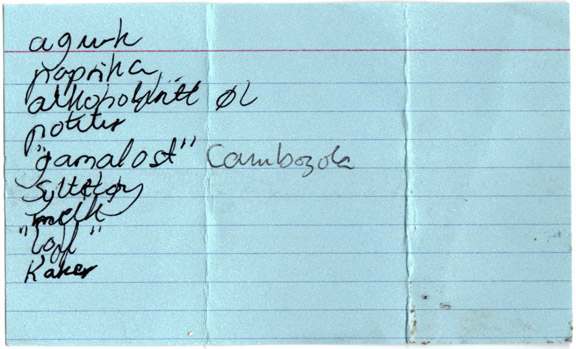 agurk
paprika
alkoholfritt ØL
poteter
"gamalost" Cambozola
syltetøy
melk
"loff"
Kaker